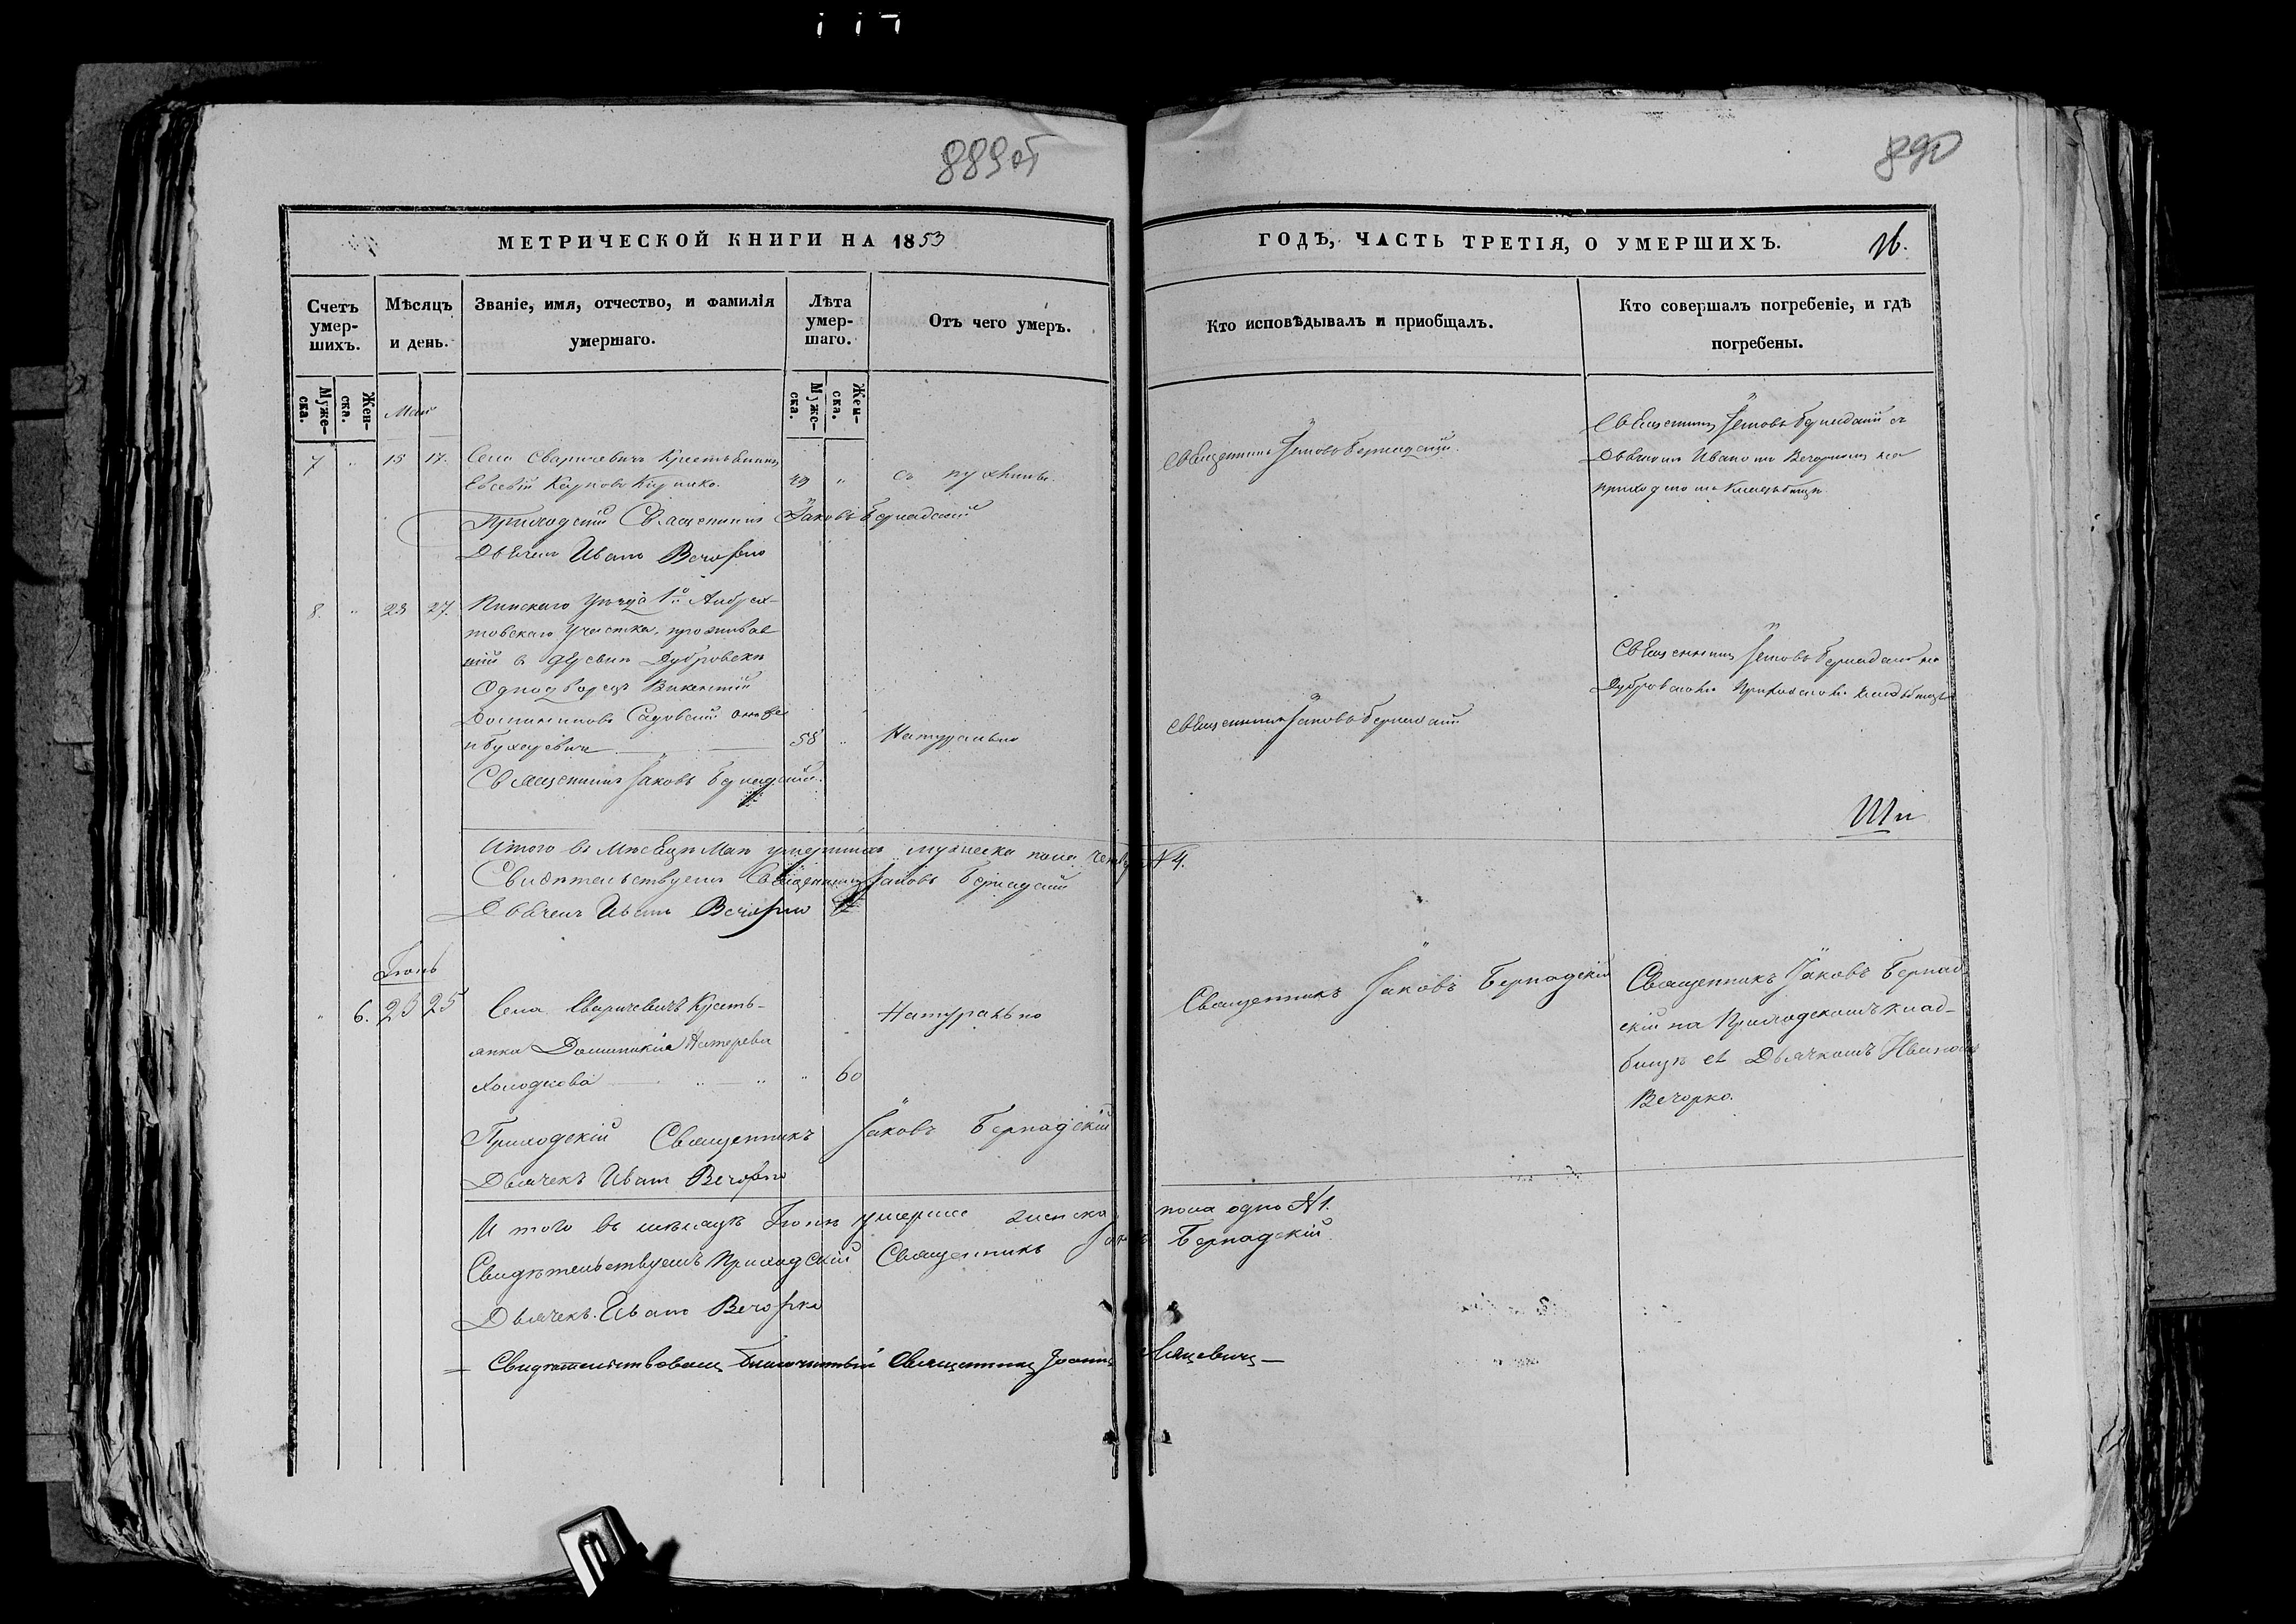 889 об
890
МЕТРИЧЕСКОЙ КНИГИ НА 1853
ГОДЪ, ЧАСТЬ ТРЕТІЯ, О УМЕРШИХЪ.
16.
Счетъ умер-шихъ.
Мѣсяцъ и день.
Званіе, имя, отчество, и фамилія умершаго.
Лѣта умер-шаго.
Отъ чего умеръ.
Кто исповѣдывалъ и приобщалъ.
Кто совершалъ погребеніе, и гдѣ погребены.
Муже-ска.
Жен-ска.
Муже-ска.
Жен-ска.
Май
7 " 15 17. Села Сваричевичъ Крестьянинъ
Евсевій Карповъ 49 "
Священникъ Іаковъ Бернадскій.
Священникъ Іаковъ Бернадскій съ
Дьячкомъ Иваномъ Вечоркомъ на
приходскомъ Кладбищѣ.
Приходскій Священникъ Іаковъ Бернадскій
Дьячекъ Иванъ Вечорко
8. " 23 27. Пинскаго Уѣзда 1го
товскаго Участка, проживав
шій в деревни Дубровскѣ
Однодворецъ Викентій
Доминиковъ Садовскій
58 " Натурально
Священникъ Іаковъ Бернадскій
Священникъ Іаковъ Бернадскій на
Дубровскомъ Приходскомъ Кладбищѣ
Священникъ Іаковъ Бернадскій.
Итого въ Мѣсяцѣ Маѣ умершихъ мужеска пола №4.
Свидѣтельствуемъ Священникъ Іаковъ Бернадскій
Дьячекъ Иванъ Вечорко
Іюнь
" 6. 23 25 Села Сваричевичъ Кресть-
янка Доминикія
Холодкова " 60
Натурально
Священникъ Іаковъ Бернадскій
Священникъ Іаковъ Бернад-
скій на Приходскомъ клад-
бищѣ съ Дьячкомъ Иваномъ
Вечорко.
Приходскій Священникъ Іаковъ Бернадскій
Дьячекъ Иванъ Вечорко
И того въ мѣсяцѣ Іюнѣ умерше женска пола одно №1.
Свидѣтельствуемъ Приходскій Священникъ Іаковъ Бернадскій.
Дьячекъ Иванъ Вечорко
Свидѣтельствовалъ Благочинный Священникъ Іоаннъ